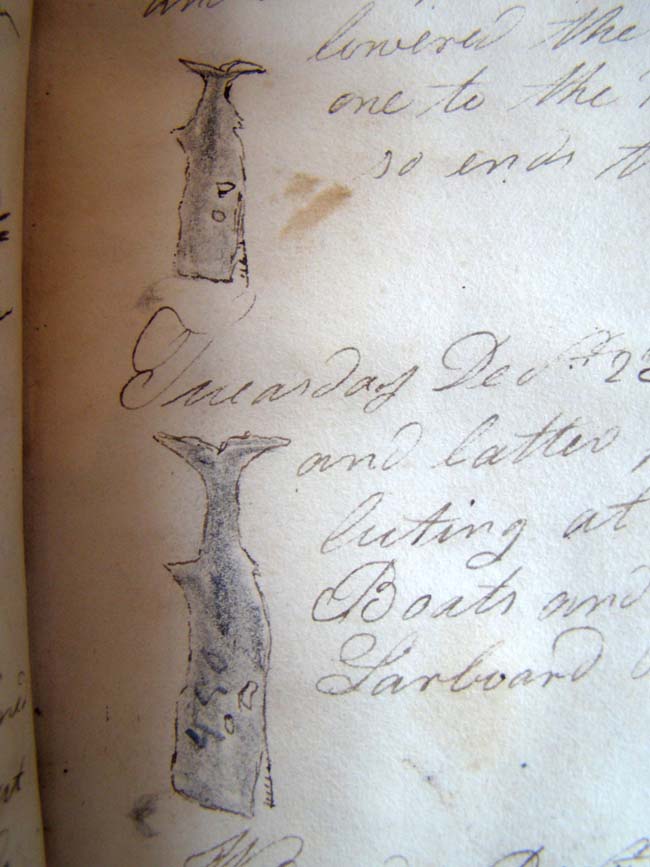 lowered the
one to the
so ends
Tuearsday Dec
and latter
luting at
450
Boats and
Larboard